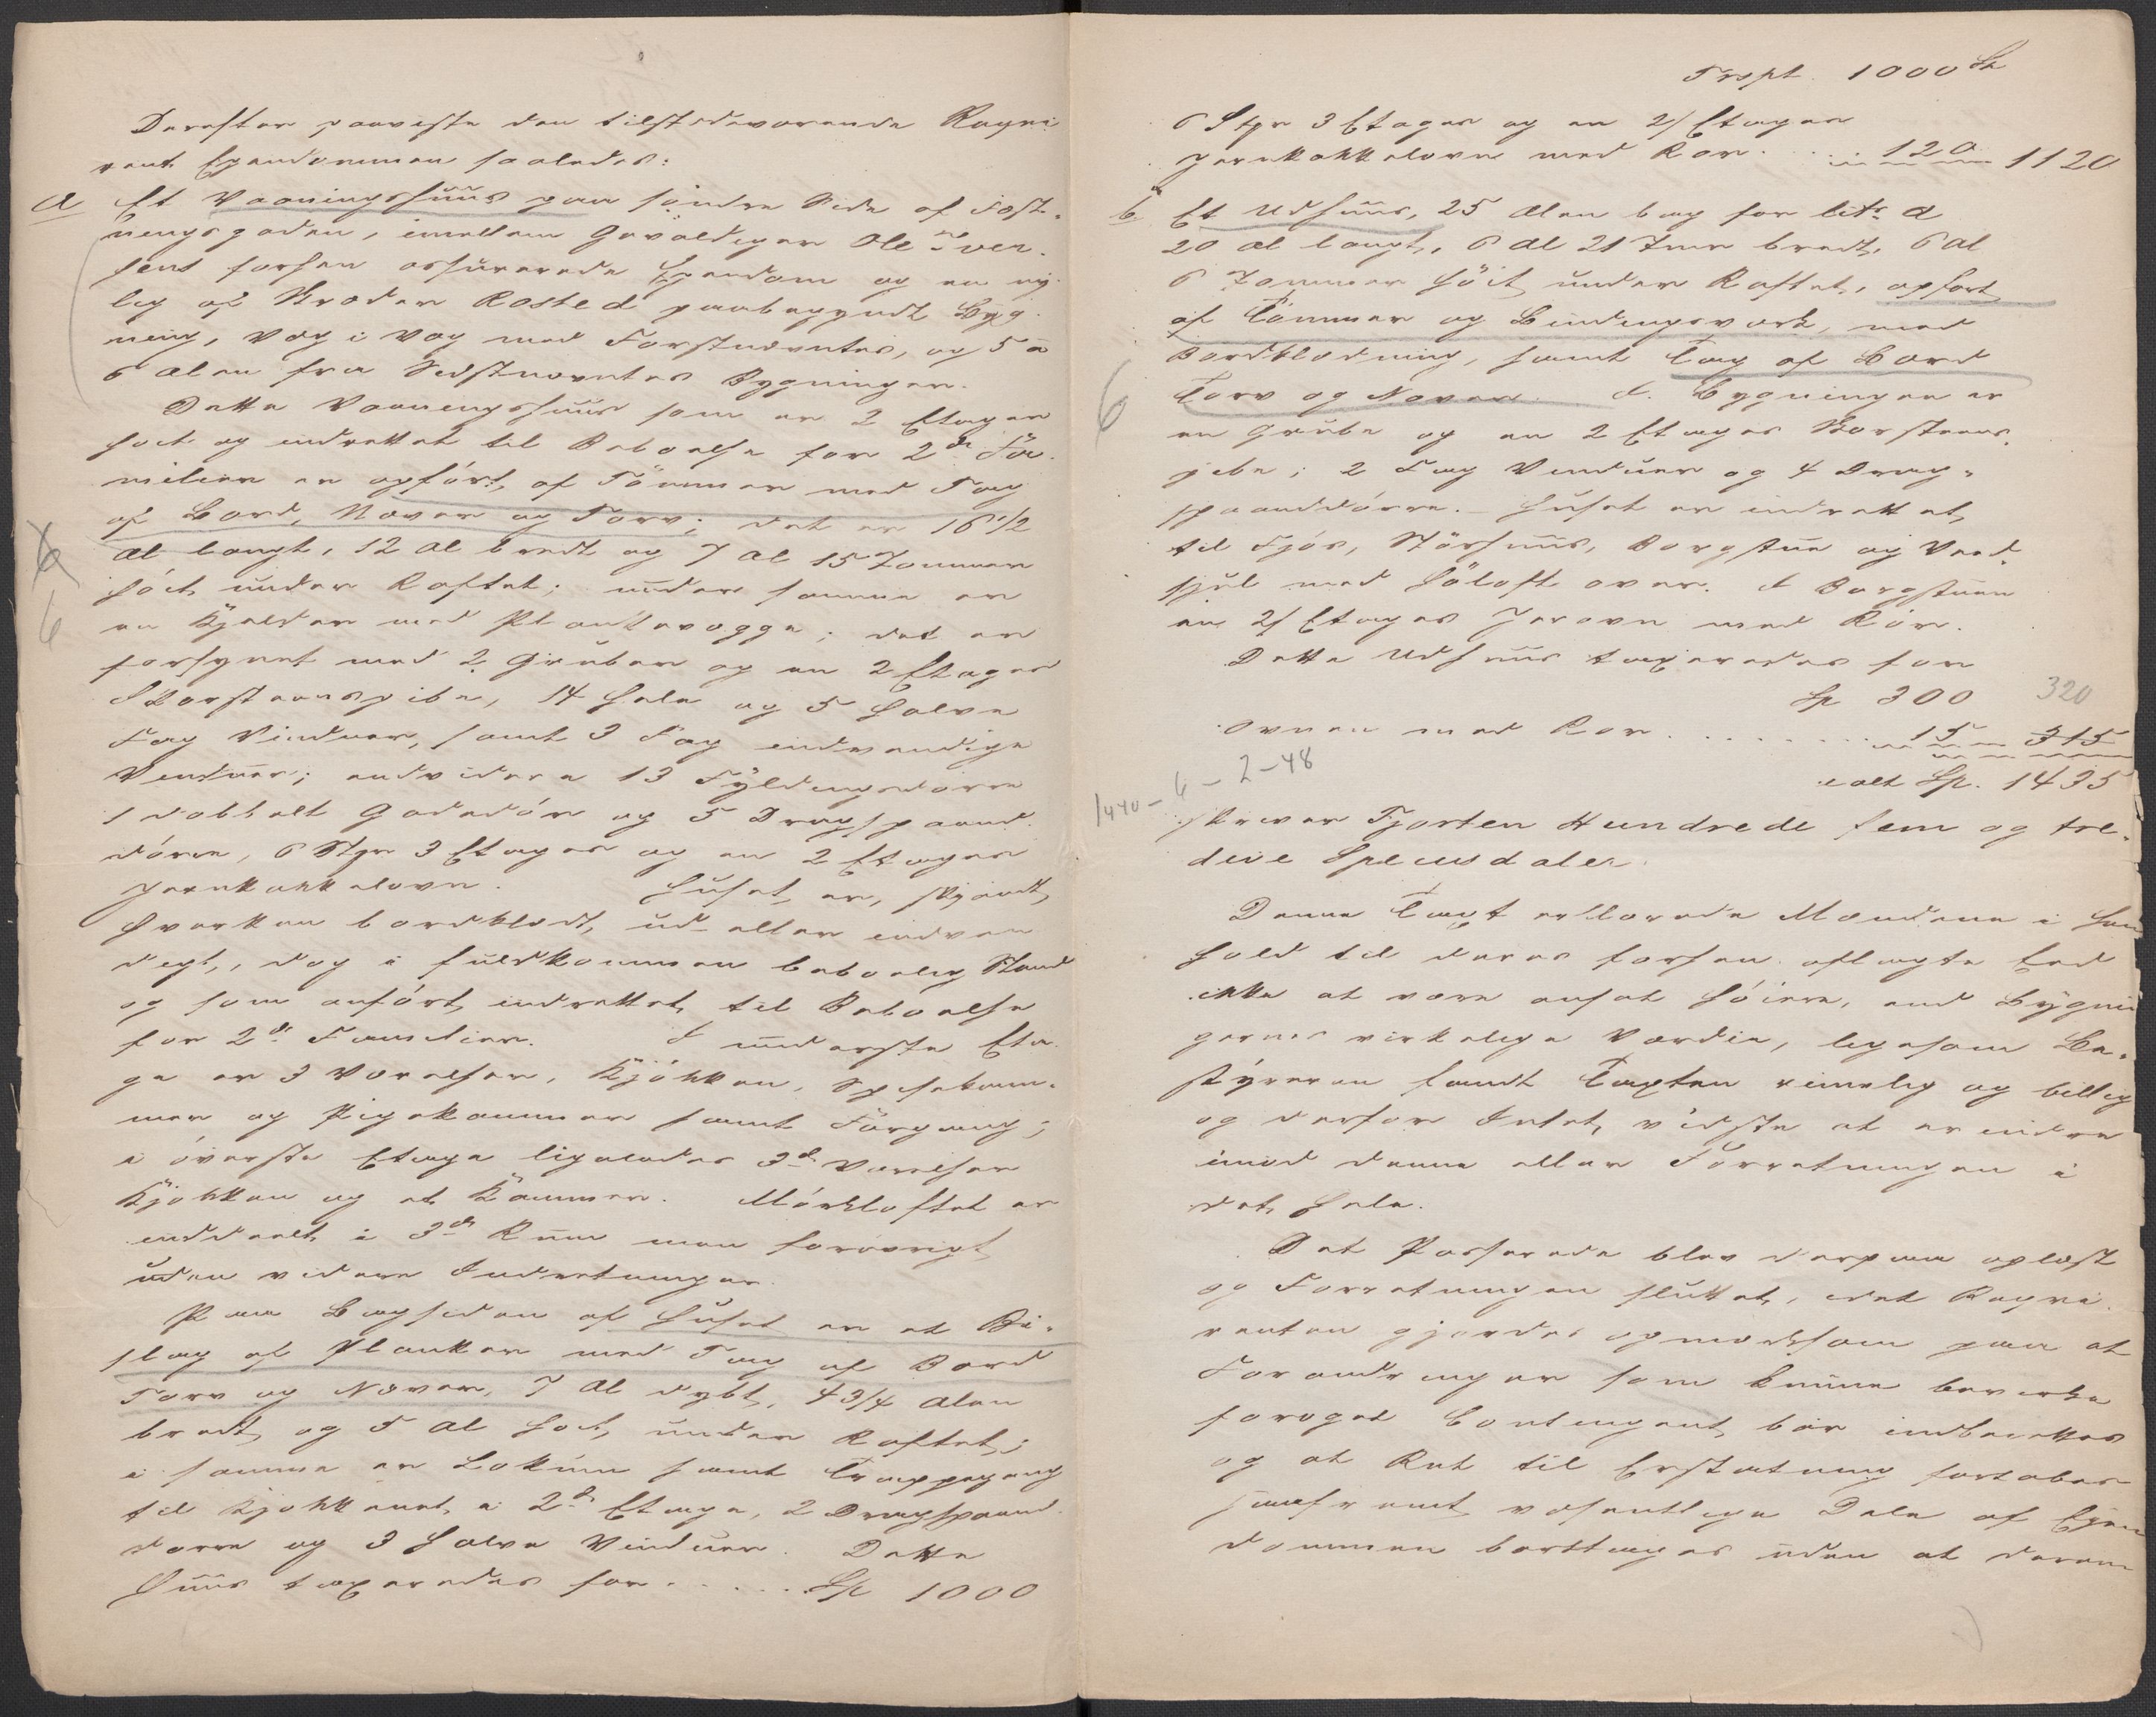 Derefter paaviste den tilstedeværende Reqvi-
rent Ejendommen saaledes:
a Et Vaaningshuus paa söndre Side af Fæst-
ningsgaden, imellem Gevaldiger Ole Iver-
sens forhen assurerede Ejendom og en ny-
lig af Broder Rosted paabegyndt Byg-
ning, Væg i Væg med Forstnævntes, og 5 a
6 Alen fra Sidstnævntes Bygninger.
Dette Vaaningshuus som er 2 Etager
höit og indrettet til Beboelse for 2de Fa-
milier er opfört af Tömmer med Tag
af Bord, Næver og Torv; det er 16 1/2
Al langt, 12 Al bredt og 7 Al 15 Tommer
höit under Raftet; under samme er
en Kjelder med Plankevægge; det er
forsynet med 2 Gruber og en 2 Etages
Skorsteenspibe, 14 hele og 5 halve
Fag Vinduer, samt 3 Fag indvendige
Vinduer; endvidere 13 Fyldingsdörre
1 dobbelt Gadedör og 5 Dragspaand-
dörre, 6 Stkr 3 Etages og en 2 Etages
Jernkakkelovn. Huset er, skjöndt
hverken bordklædt ud- eller indven-
digt, dog i fuldkommen beboelig Stand
og som anfört indrettet til Beboelse
for 2de Familier. I underste Eta-
ge er 3 Værelser, Kjökken, Spisekam-
mer og Pigekammer samt Forgang;
i överste Etage ligeledes 3de Værelser
Kjökken og et Kammer. Mörkloftet er
inddeelt i 3de Rum men forövrigt
uden videre Indretninger.
Paa Bagsiden af Huset er et Bi-
slag af Planker med Tag af Bord
Torv og Næver, 7 Al dybt, 4 3/4 Alen
bredt og 5 Al höit under Raftet;
i samme er Lokum samt Trappegang
til Kjökkenet i 2de Etage, 2 Dragspaand-
dörre og 3 halve Vinduer. Dette
Huus taxeredes for . . . . . . Sp 1000
Trspt. 1000 Sp
6 Stkr 3 Etages og en 2 Etages
Jernkakkelovn med Rör . . . 120 1120
b. Et Udhuus, 25 Alen bag for litr a
20 Al langt, 6 Al 21 Tmr bredt, 6 Al
6 Tommer höit under Raftet, opfört
af Tömmer og Bindingsværk, med
Bordklædning, samt Tag af Bord
Torv og Næver. I Bygningen er
en Grube og en 2 Etages Skorsteens-
pibe; 2 Fag Vinduer og 4 Drag-
spaanddörre. Huset er indrettet
til Fjös, Störhuus, Borgstue og Veed-
skjul med Höloft over. I Borgstuen
en 2 Etages Jernovn med Rör.
Dette Udhuus taxeredes for
Sp 300 320
Ovnen med Rör . . . . . . . . 15 315
ialt Sp. 1435
1440 - 6 - 2 - 48
skriver Fjorten Hundrede fem og tre-
dive Speciesdaler.
Denne Taxt erklærede Mændene i Hen-
hold til deres forhen aflagte Eed
ikke at være ansat höiere, end Bygnin-
gernes virkelige Værdie, ligesom Be-
styreren fandt Taxten rimelig og billig
og derfor Intet vidste at erindre
imod denne eller Forretningen i
det Hele.
Det Passerede blev derpaa oplæst
og Forretningen sluttet, idet Reqvi-
renten gjordes opmærksom paa at
Forandringer som kunne bevirke
foröget Contingent bör indberettes
og at Ret til Erstatning fortabes
saafremt væsentlige Dele af Ejen-
dommen borttages uden at derom
6
6